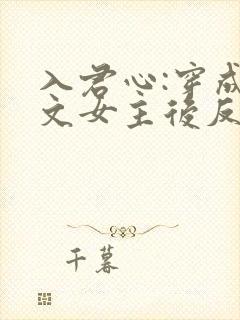 入君心:穿成
文女主後反
千暮